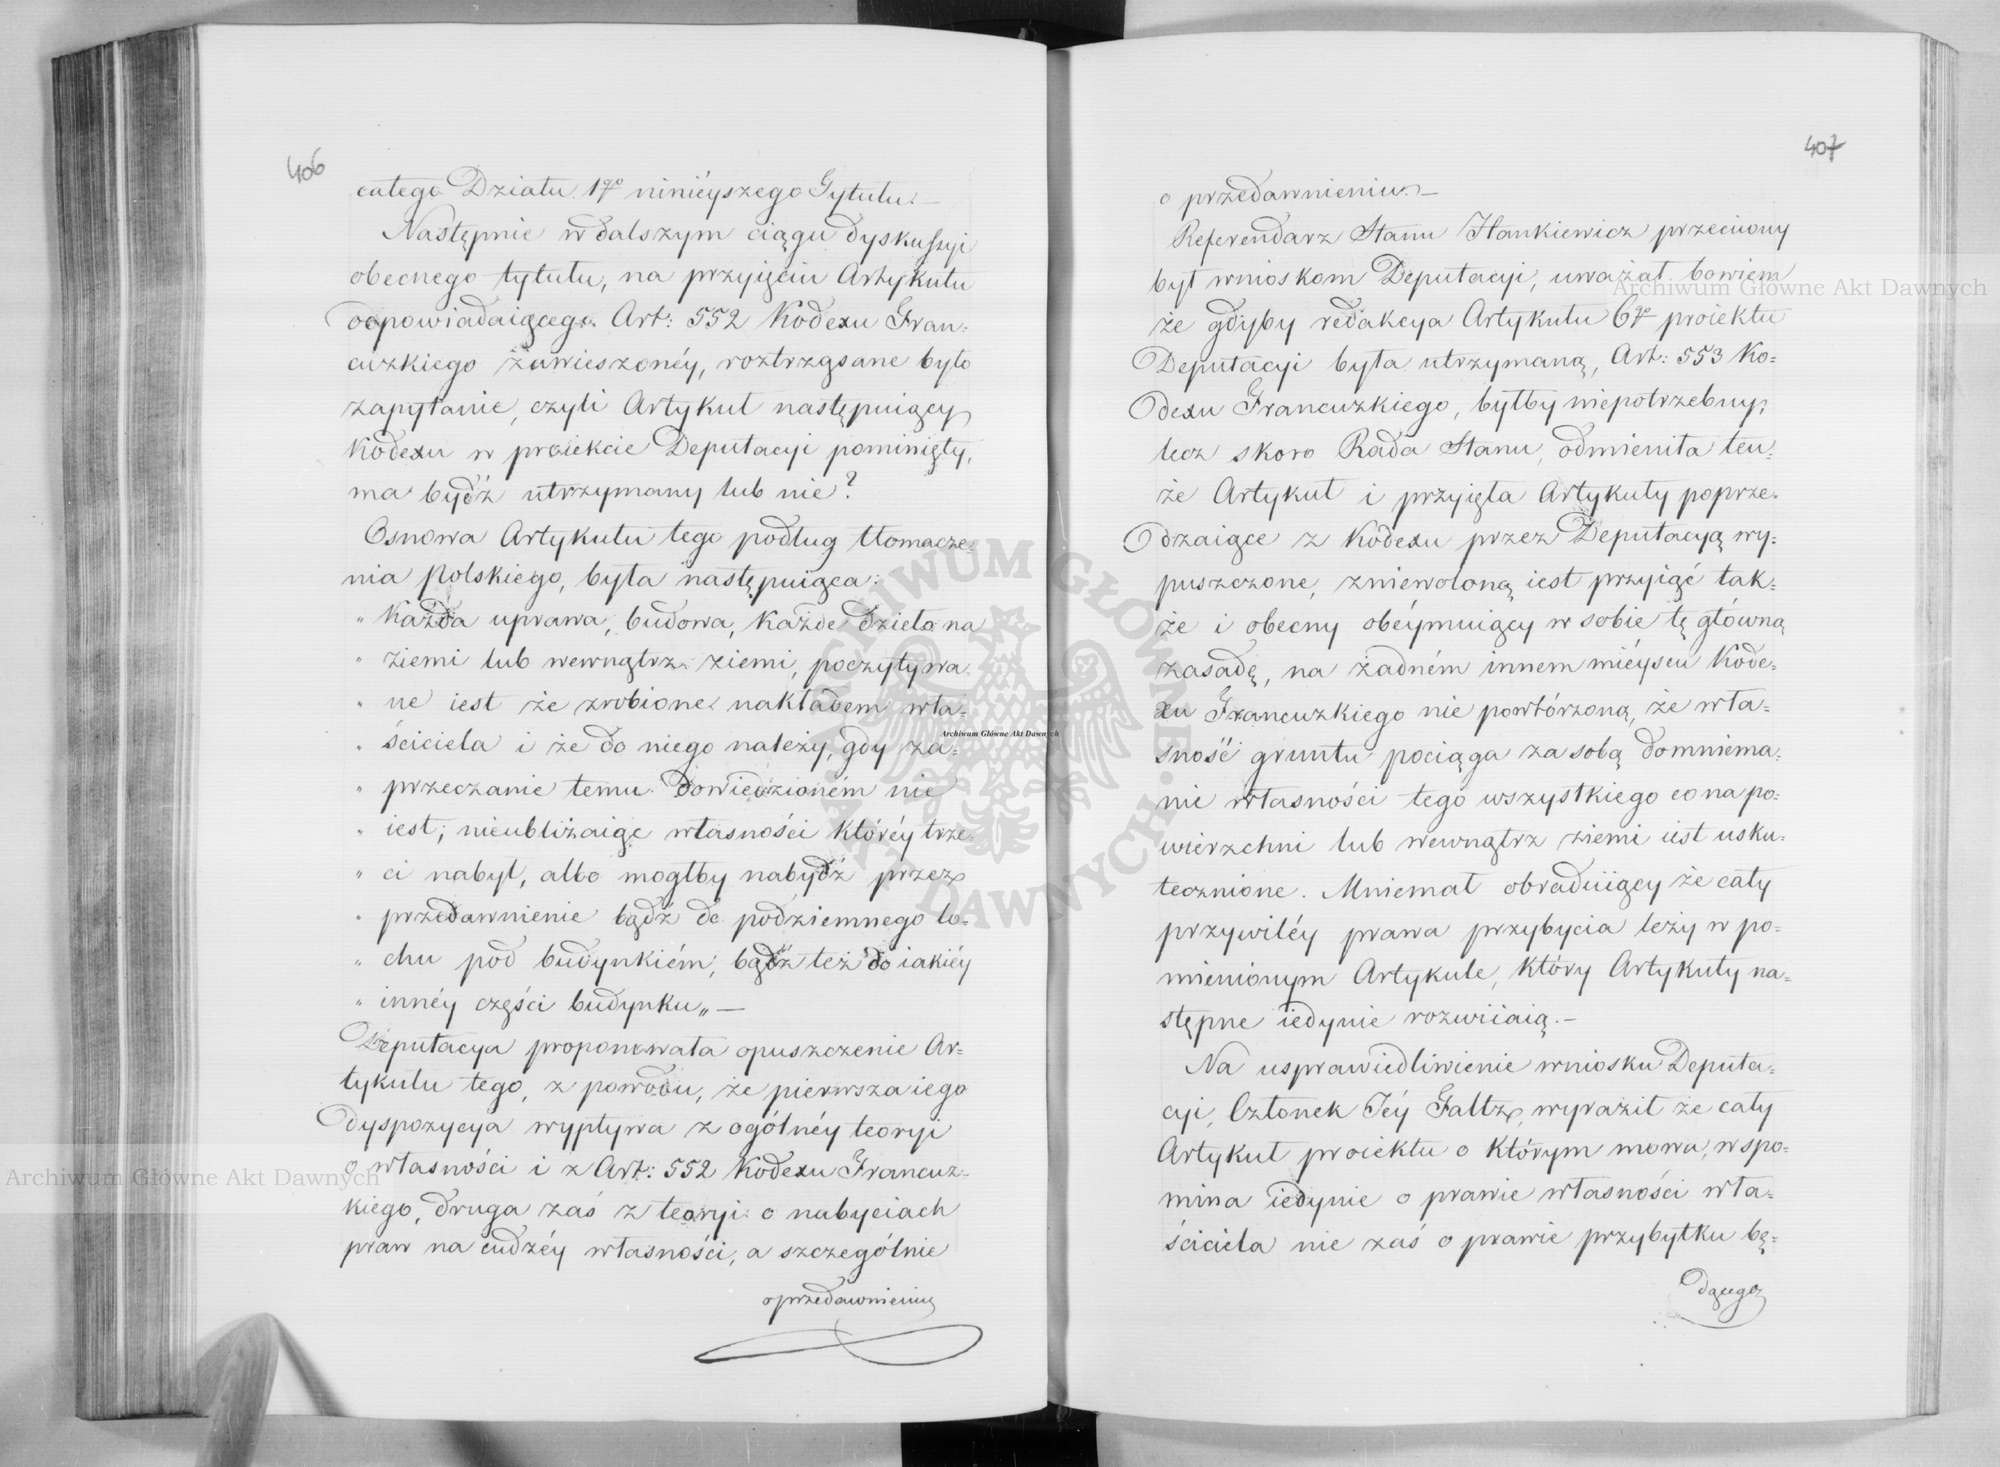 406
całego Działu 1go ninieyszego Tytułu.—
Następnie w dalszym ciągu dyskussyi
obecnego tytułu, na przyięciu Artykułu
odpowiadaiącego Art: 552 Kodexu Fran:
cuzkiego zawieszonéy, roztrząsane było
zapytanie, czyli Artykuł następuiący
Kodexu w proiekcie Deputacyi pominięty,
ma bydź utrzymany lub nie?
Osnowa Artykułu tego podług tłomacze:
nia Polskiego, była następuiąca:
„ Każda uprawa, budowa, każde dzieło na
„ ziemi lub wewnątrz ziemi, poczytywa:
„ ne iest że zrobione nakładem wła:
„ ściciela i że do niego należy, gdy za:
„ przeczanie temu dowiedzioném nie
„ iest; nieubliżaiąc własności któréy trze:
„ ci nabył, albo mogłby nabydź przez
„ przedawnienie bądź do podziemnego lo:
„ chu pod budynkiém, bądź też do iakiéy
„ innéy części budynku„—
Deputacya proponowała opuszczenie Ar:
tykułu tego, z powodu, że pierwsza iego
dyspozycya wypływa z ogólnéy teoryi
o własności i z Art: 552 Kodexu Francuz:
kiego, druga zaś z teoryi o nabyciach
praw na cudzéy własności, a szczególnie
o przedawnieniu
407
o przedawnieniu.—
Referendarz Stanu Hankiewicz przeciwny
był wnioskom Deputacyi, uważał bowiem
że gdyby redakcya Artykułu 6go proiektu
Deputacyi była utrzymaną, Art: 553 Ko:
dexu Francuzkiego, byłby niepotrzebny;
lecz skoro Rada Stanu, odmieniła ten:
że Artykuł i przyięła Artykuły poprze:
dzaiące z Kodexu przez Deputacyą wy:
puszczone, zniewoloną iest przyiąć tak:
że i obecny obéymuiący w sobie tę główną
zasadę, na żadném innem miéyscu Kode:
xu Francuzkiego nie powtórzoną, że wła:
sność gruntu pociąga za sobą domniema:
nie własności tego wszystkiego co na po:
wierzchni lub wewnątrz ziemi iest usku:
tecznione. Mniemał obraduiący że cały
przywiléy prawa przybycia leży w po:
mienionym Artykule, który Artykuły na:
stępne iedynie rozwiiaią.—
Na usprawiedliwienie wniosku Deputa:
cyi, Członek Jéy Faltz, wyraził że cały
Artykuł proiektu o którym mowa, wspo:
mina iedynie o prawie własności wła:
ściciela nie zaś o prawie przybytku bę:
dącego
Archiwum Główne Akt Dawnych
Archiwum Główne Akt Dawnych
Archiwum Główne Akt Dawnych
ARCHIWUM GŁÓWNE AKT DAWNYCH